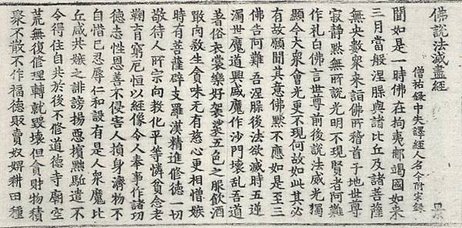 佛說法滅盡經
僧祐錄中失譯經人名今附宋錄
聞如是一時佛在拘夷那竭國如來
三月當般涅槃與諸比丘及諸菩薩
無央數衆來詣佛所稽首于地世尊
寂靜默無所說光明不現賢者阿難
作礼白佛言世尊前後說法威光獨
顯今大衆會光更不現何故如此其必
有故願聞其意佛默不應如是至三
佛告阿難吾涅槃後法欲滅時五逆
濁世魔道興盛魔作沙門壞亂吾道
著俗衣裳樂好袈裟五色之服飲酒
噉肉煞生貪味無有慈心更相憎嫉
時有菩薩辟支羅漢精進修德一切
敬待人所宗向教化平等憐貧念老
鞠育窮厄恒以經像令人奉事作諸功
德志性恩善不侵害人捐身濟物不
自惜己忍辱仁和設有是人衆魔比
丘咸共嫉之誹謗揚惡擯黜駈遣不
令得住自共於後不修道德寺廟空
荒無復修理轉就毀壞但貪財物積
聚不散不作福德販賣奴婢耕田種